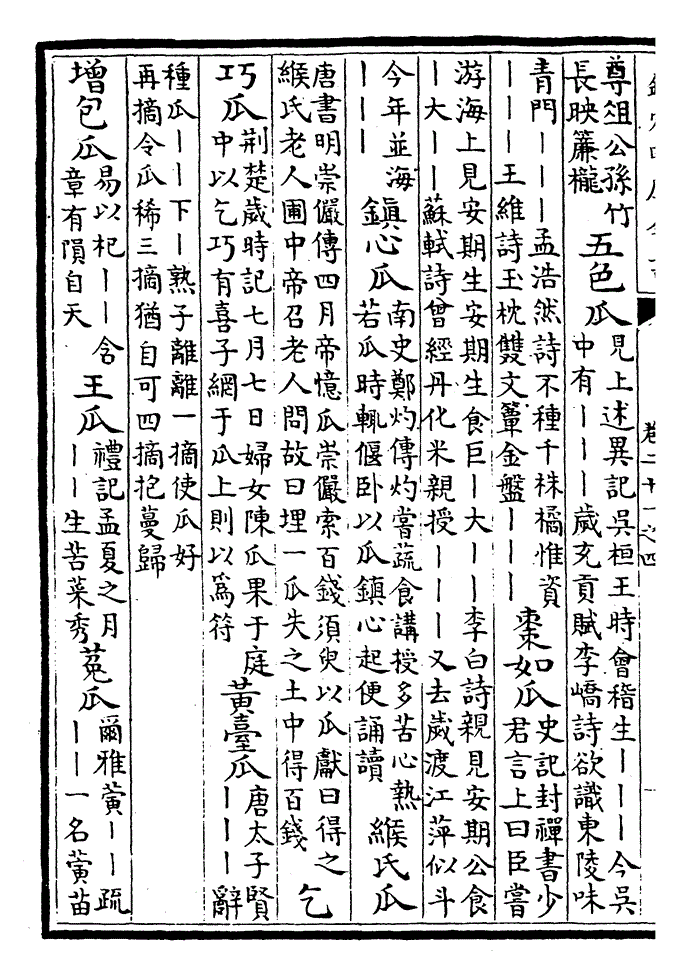 欽定四庫全書
卷二十一之四
尊俎公孫竹
長映簾櫳
五色瓜
見上述異記吳桓王時會稽生丨丨丨今吳
中有丨丨丨歲充貢賦李嶠詩欲識東陵味
青門丨丨丨孟浩然詩不種千株橘惟資
丨丨丨王維詩玉枕雙文簟金盤丨丨丨
棗如瓜
史記封禪書少
君言上曰臣嘗
游海上見安期生安期生食巨丨大丨丨李白詩親見安期公食
丨大丨丨蘇軾詩曾經丹化米親授丨丨丨又去歲渡江萍似斗
今年並海
丨丨丨
鎮心瓜
南史鄭灼傳灼嘗蔬食講授多苦心熱
若瓜時輒偃卧以瓜鎮心起便誦讀
緱氏瓜
唐書明崇儼傳四月帝憶瓜崇儼索百錢須臾以瓜獻曰得之
緱氏老人圃中帝召老人問故曰埋一瓜失之土中得百錢
乞
巧瓜
荆楚歲時記七月七日婦女陳瓜果于庭
中以乞巧有喜子網于瓜上則以為符
黄臺瓜
唐太子賢
丨丨丨辭
種瓜丨丨下丨熟子離離一摘使瓜好
再摘令瓜稀三摘猶自可四摘抱蔓歸
增包瓜
易以杞丨丨含
章有隕自天
王瓜
禮記孟夏之月
丨丨生苦菜秀
菟瓜
爾雅黄丨丨疏
丨丨一名黄苗